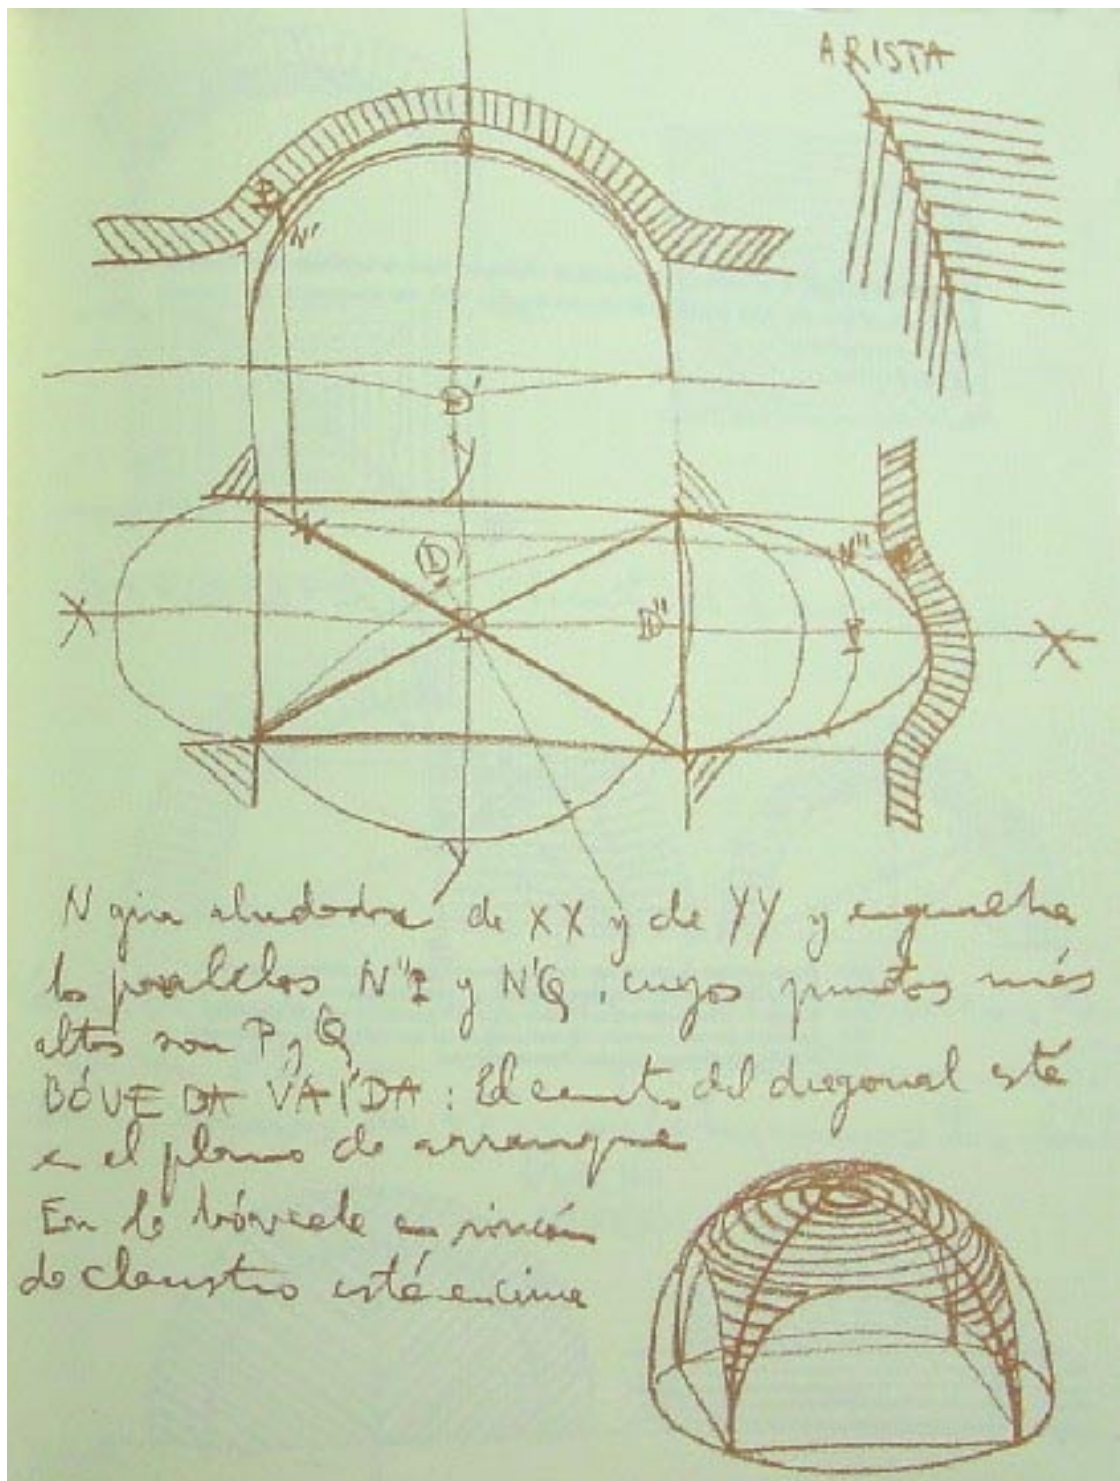 ARISTA
N'
D'
Y
N
D
N''
D''
P
X
X
Y
N gira alrededor de XX y de YY y engendra
los paralelos N''P y N'Q, cuyos puntos más
altos son P y Q
BÓVEDA VAÍDA: El centro del diagonal está
en el plano de arranque
En la bóveda en rincón
de claustro está encima